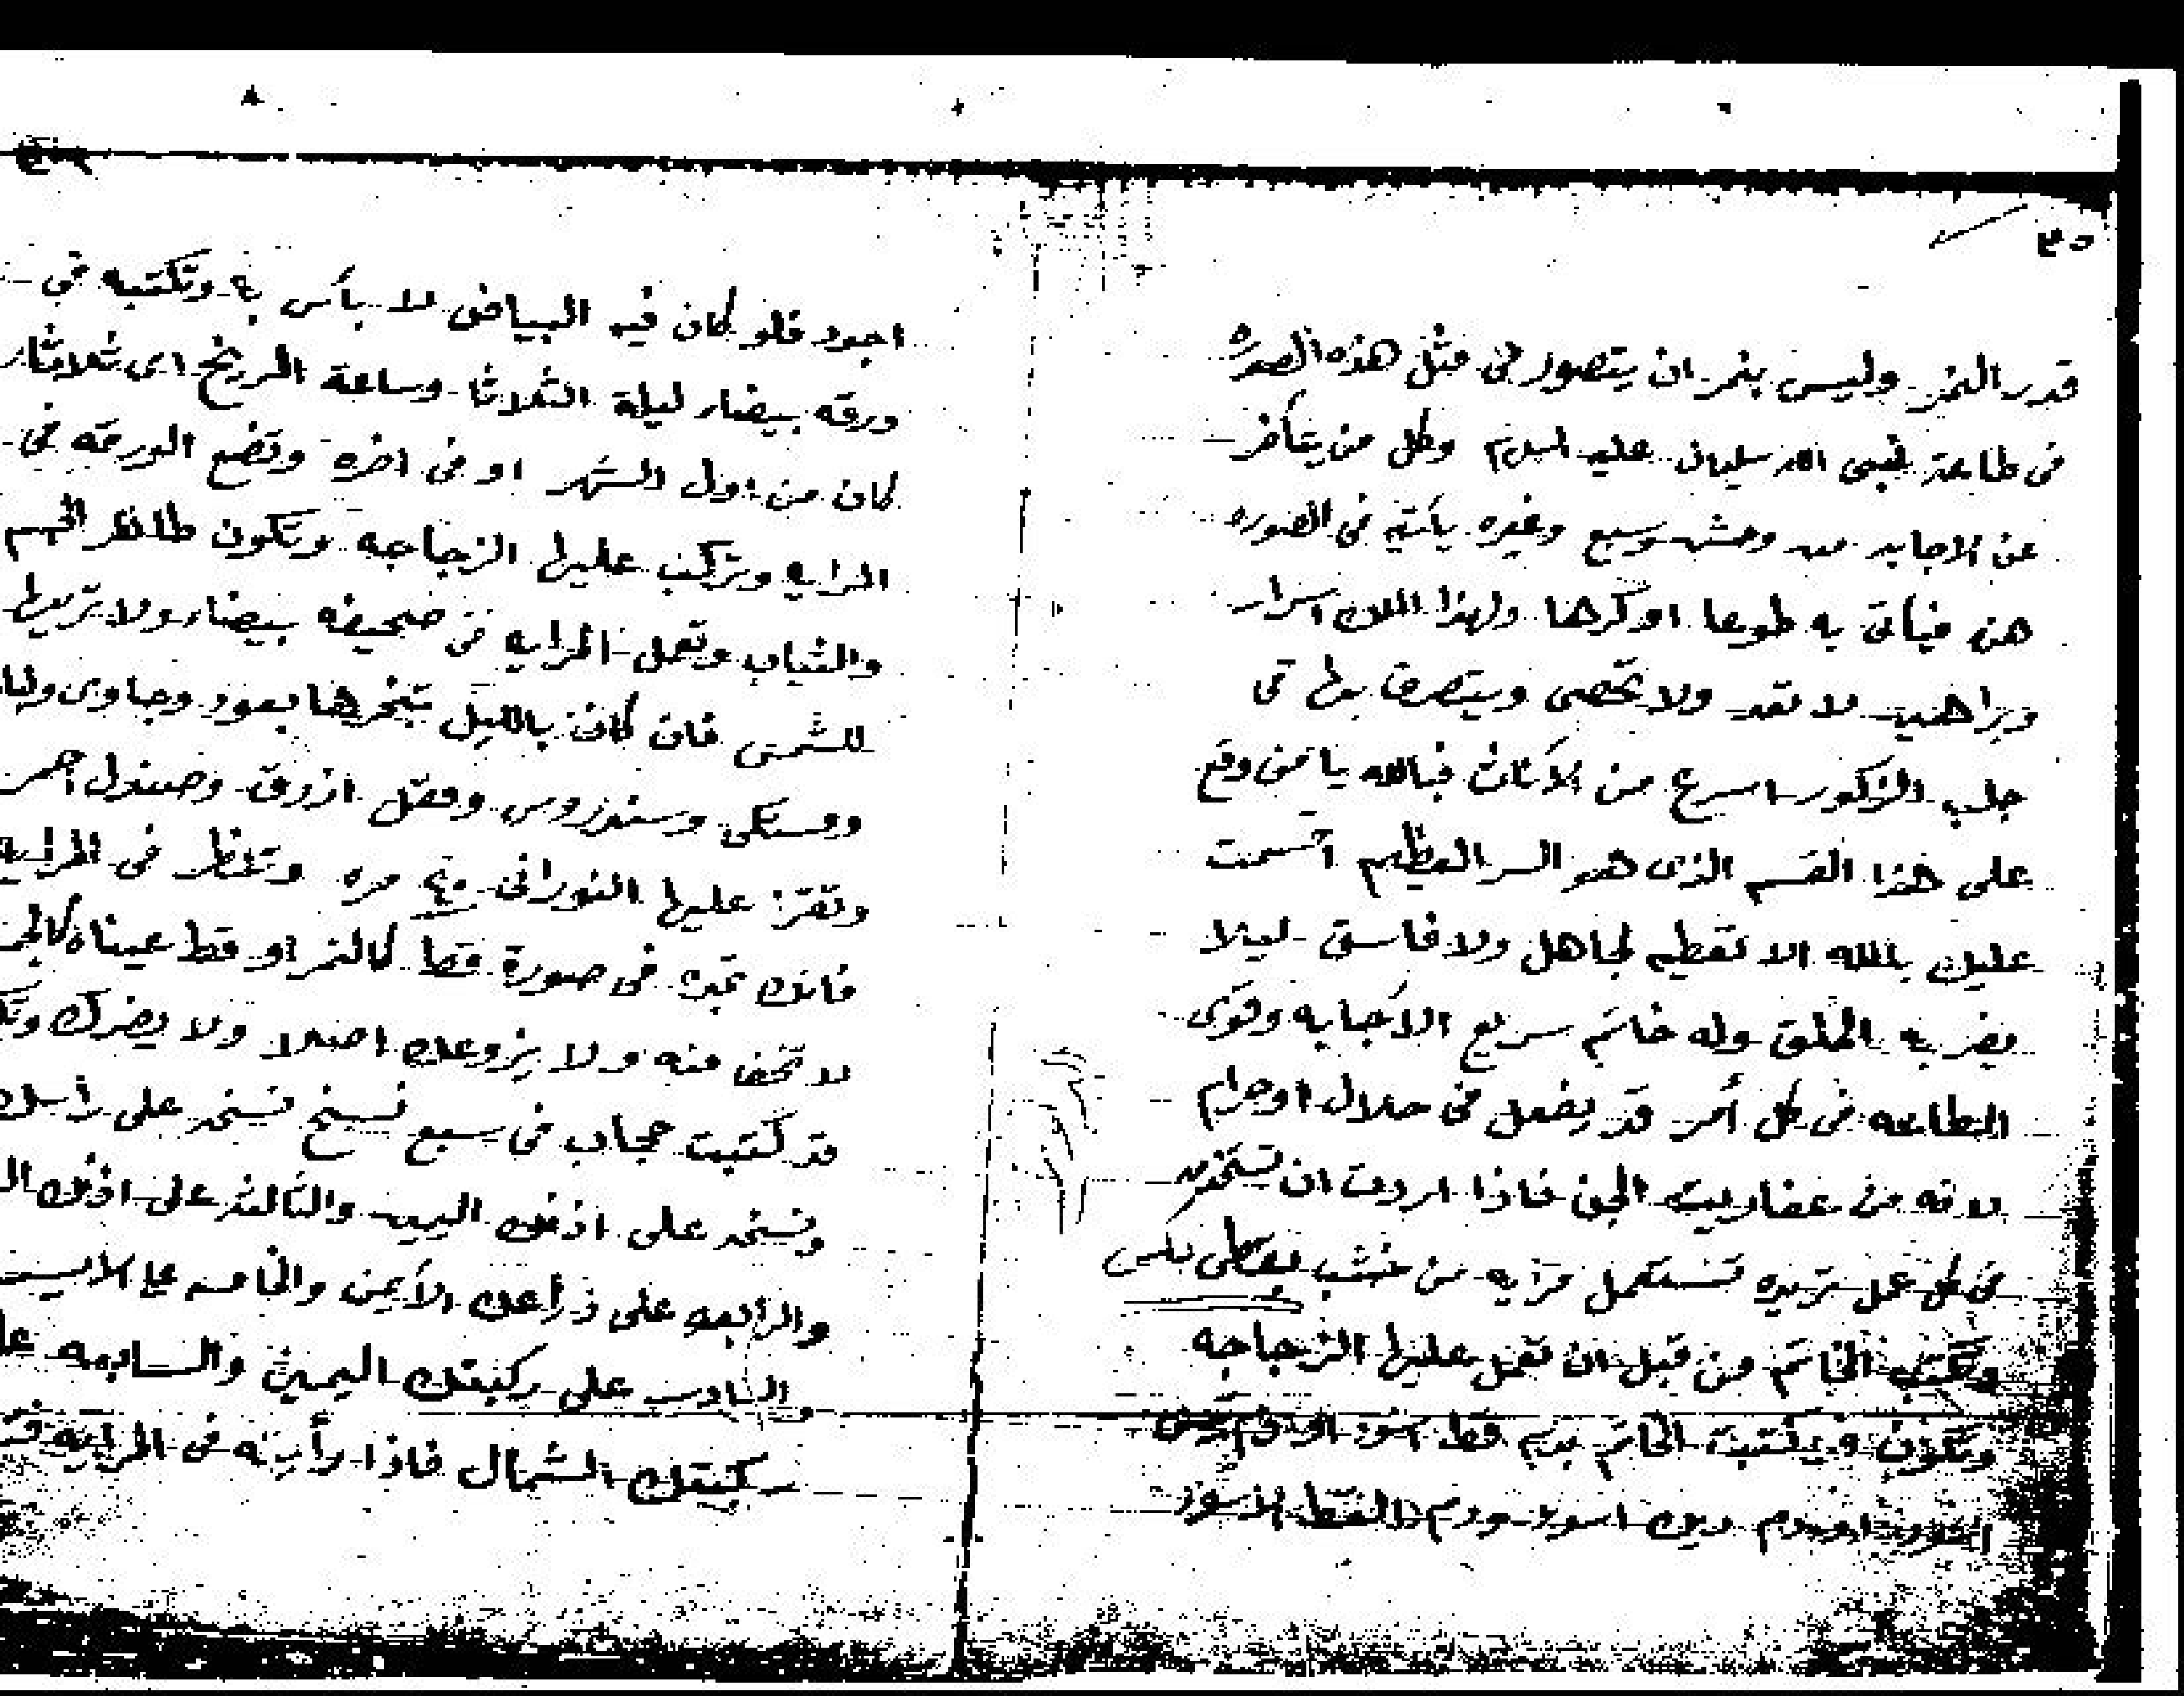 ٣٥
قدر النمر وليس بنمر ان يتصور في مثل هذه الصوره
في طاعة لنبى الله سليمان عليه السلام وكل من يتأخر
عن الاجابه من وحش وسبع وغيره يأتيه في الصوره
هذه فيأتى به طوعا او كرها ولهذا الملك اسرار
وبراهين لا تعد ولا تحصى ويتصرف بها فى
جلب الذكور اسرع من الاناث فبالله يا من وقع
على هذا القسم الذى هو السر العظيم اقسمت
عليك بالله الا تعطيه لجاهل ولا فاسق ليلا
يضر به الخلق وله خاتم سريع الاجابه وقوى
الطاعه في كل أمر قد يفعل في حلال او حرام
لانه من عفاريت الجن فاذا اردت ان تستخدمه
في اى عمل تريده تستعمل مرايه من خشب
وتكتب الخاتم من قبل ان تعمل عليها الزجاجه
وتكون قد كتبت الخاتم بدم قط اسود او دم
او دم ديك اسود ودم القط الاسود
اجود فلو كان فيه البياض لا بأس به وتكتبه في
ورقه بيضاء ليلة الثلاثا وساعة المريخ اى ثلاثاء
كان من اول الشهر او في اخره وتضع الورقه في
المرايه وتركب عليها الزجاجه وتكون طاهر الجسم
والثياب وتعمل المرايه في صحيفه بيضاء ولا تريها
للشمس فان كان بالليل تبخرها بعود وجاوى ولبان
ومستكى وسندروس ومقل ازرق وصندل احمر
وتقرأ عليها النورانى مره وتنظر في المرايه
فانك تجده في صورة قط كالنمر او قط عيناه كالجمر
لا تخف منه ولا يزوعك اصلا ولا يضرك
قد كتبت حجاب في سبع نسخ نسخه على رأسك
ونسخه على اذنك اليمين والثالثه على اذنك
والرابعه على ذراعك الايمن والخامسه على الايسر
والسادسه على ركبتك اليمين والسابعه
ركبتك الشمال فاذا رأيته في المرايه